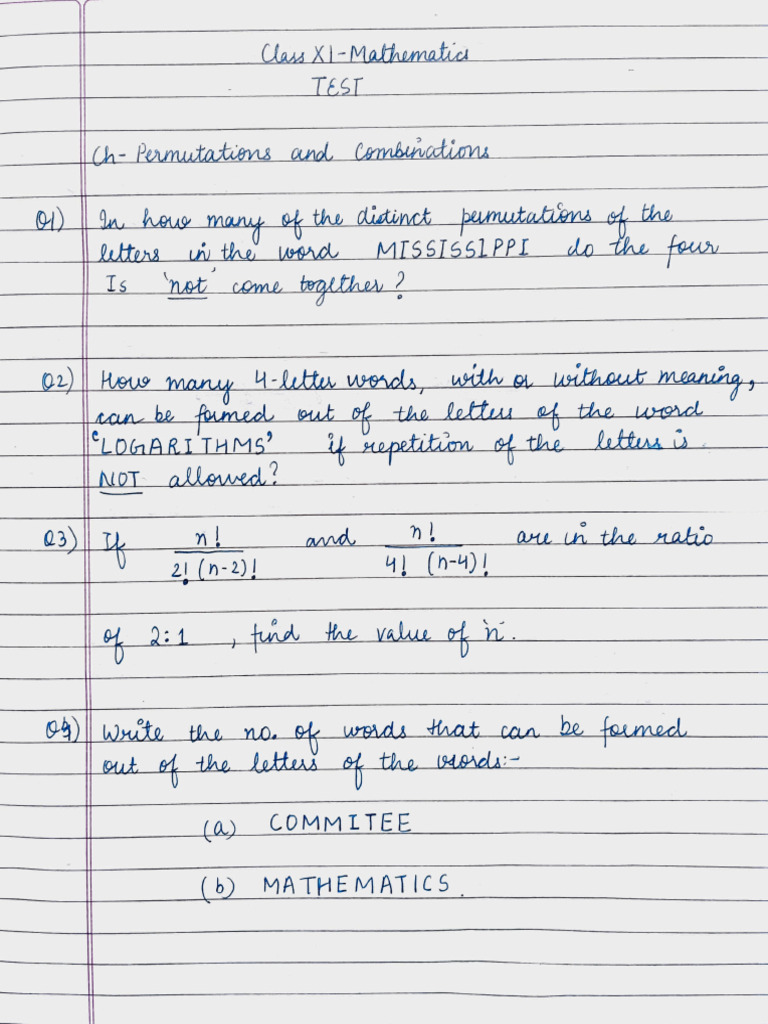 Class XI-Mathematics
TEST
Ch- Permutations and Combinations
Q1) In how many of the distinct permutations of the
letters in the word MISSISSIPPI do the four
Is 'not' come together?
Q2) How many 4-letter words, with or without meaning,
can be formed out of the letters of the word
'LOGARITHMS' if repetition of the letters is
NOT allowed?
Q3) If n! / 2! (n-2)! and n! / 4! (n-4)! are in the ratio
of 2:1 , find the value of 'n'.
Q4) Write the no. of words that can be formed
out of the letters of the words:-
(a) COMMITEE
(b) MATHEMATICS.